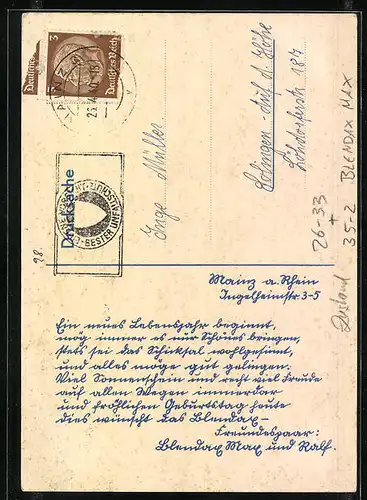 3
Deutsches
Deutsches Reich
MAINZ
Drucksache
BESTER UNFALLSCHUTZ
Inge Müller
Solingen-Auf d. Höhe
Löhdorferstr 187
26-33
+
35-2 BLENDAX MAX
Mainz a. Rhein
Ingelheimstr. 3-5
Ein neues Lebensjahr beginnt,
mög immer es nur Schönes bringen,
stets sei das Schicksal wohlgesinnt,
und alles möge gut gelingen.
Viel Sonnenschein und recht viel Freude
auf allen Wegen immerdar
und fröhlichen Geburtstag heute
dies wünscht das Blendax-
Freundespaar:
Blendax Max und Ralf.